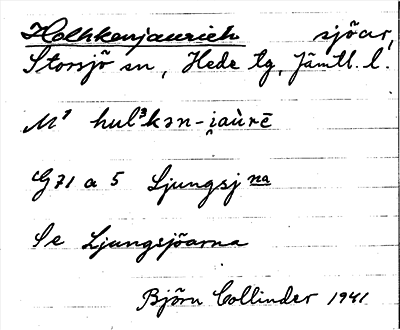 Holhkenjaurieh sjöar,
Storsjö sn, Hede tg, Jämtl. l.
M¹ hul³kən-i̯aùrē
G71 a 5 Ljungsjna
Se Ljungsjöarna
Björn Collinder 1941